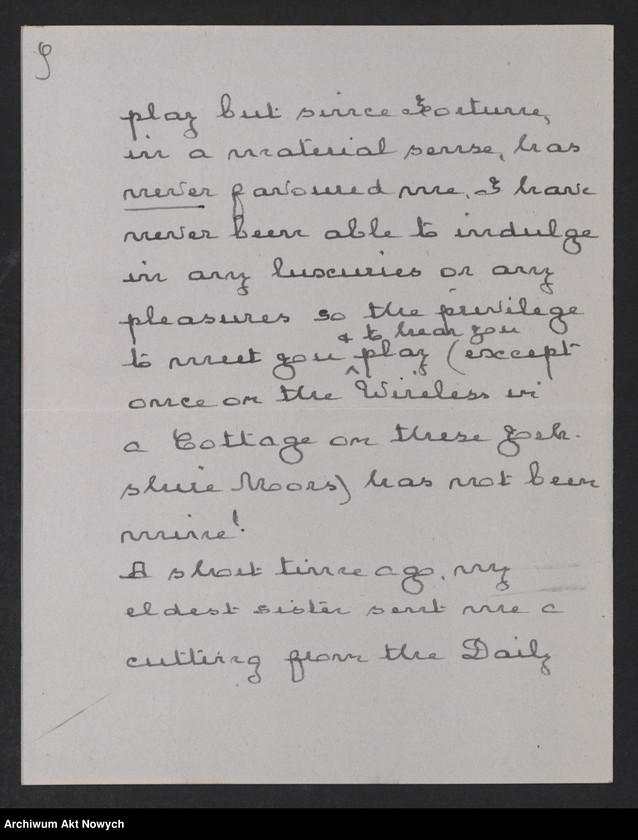 9
play but since Fortune,
in a material sense, has
never favoured me, I have
never been able to indulge
in any luxuries or any
pleasures so the privilege
& to hear you
to meet you ^ play (except
once on the Wireless in
a Cottage on these York-
shire Moors) has not been
mine!
A short time ago, my
eldest sister sent me a
cutting from the Daily
Archiwum Akt Nowych